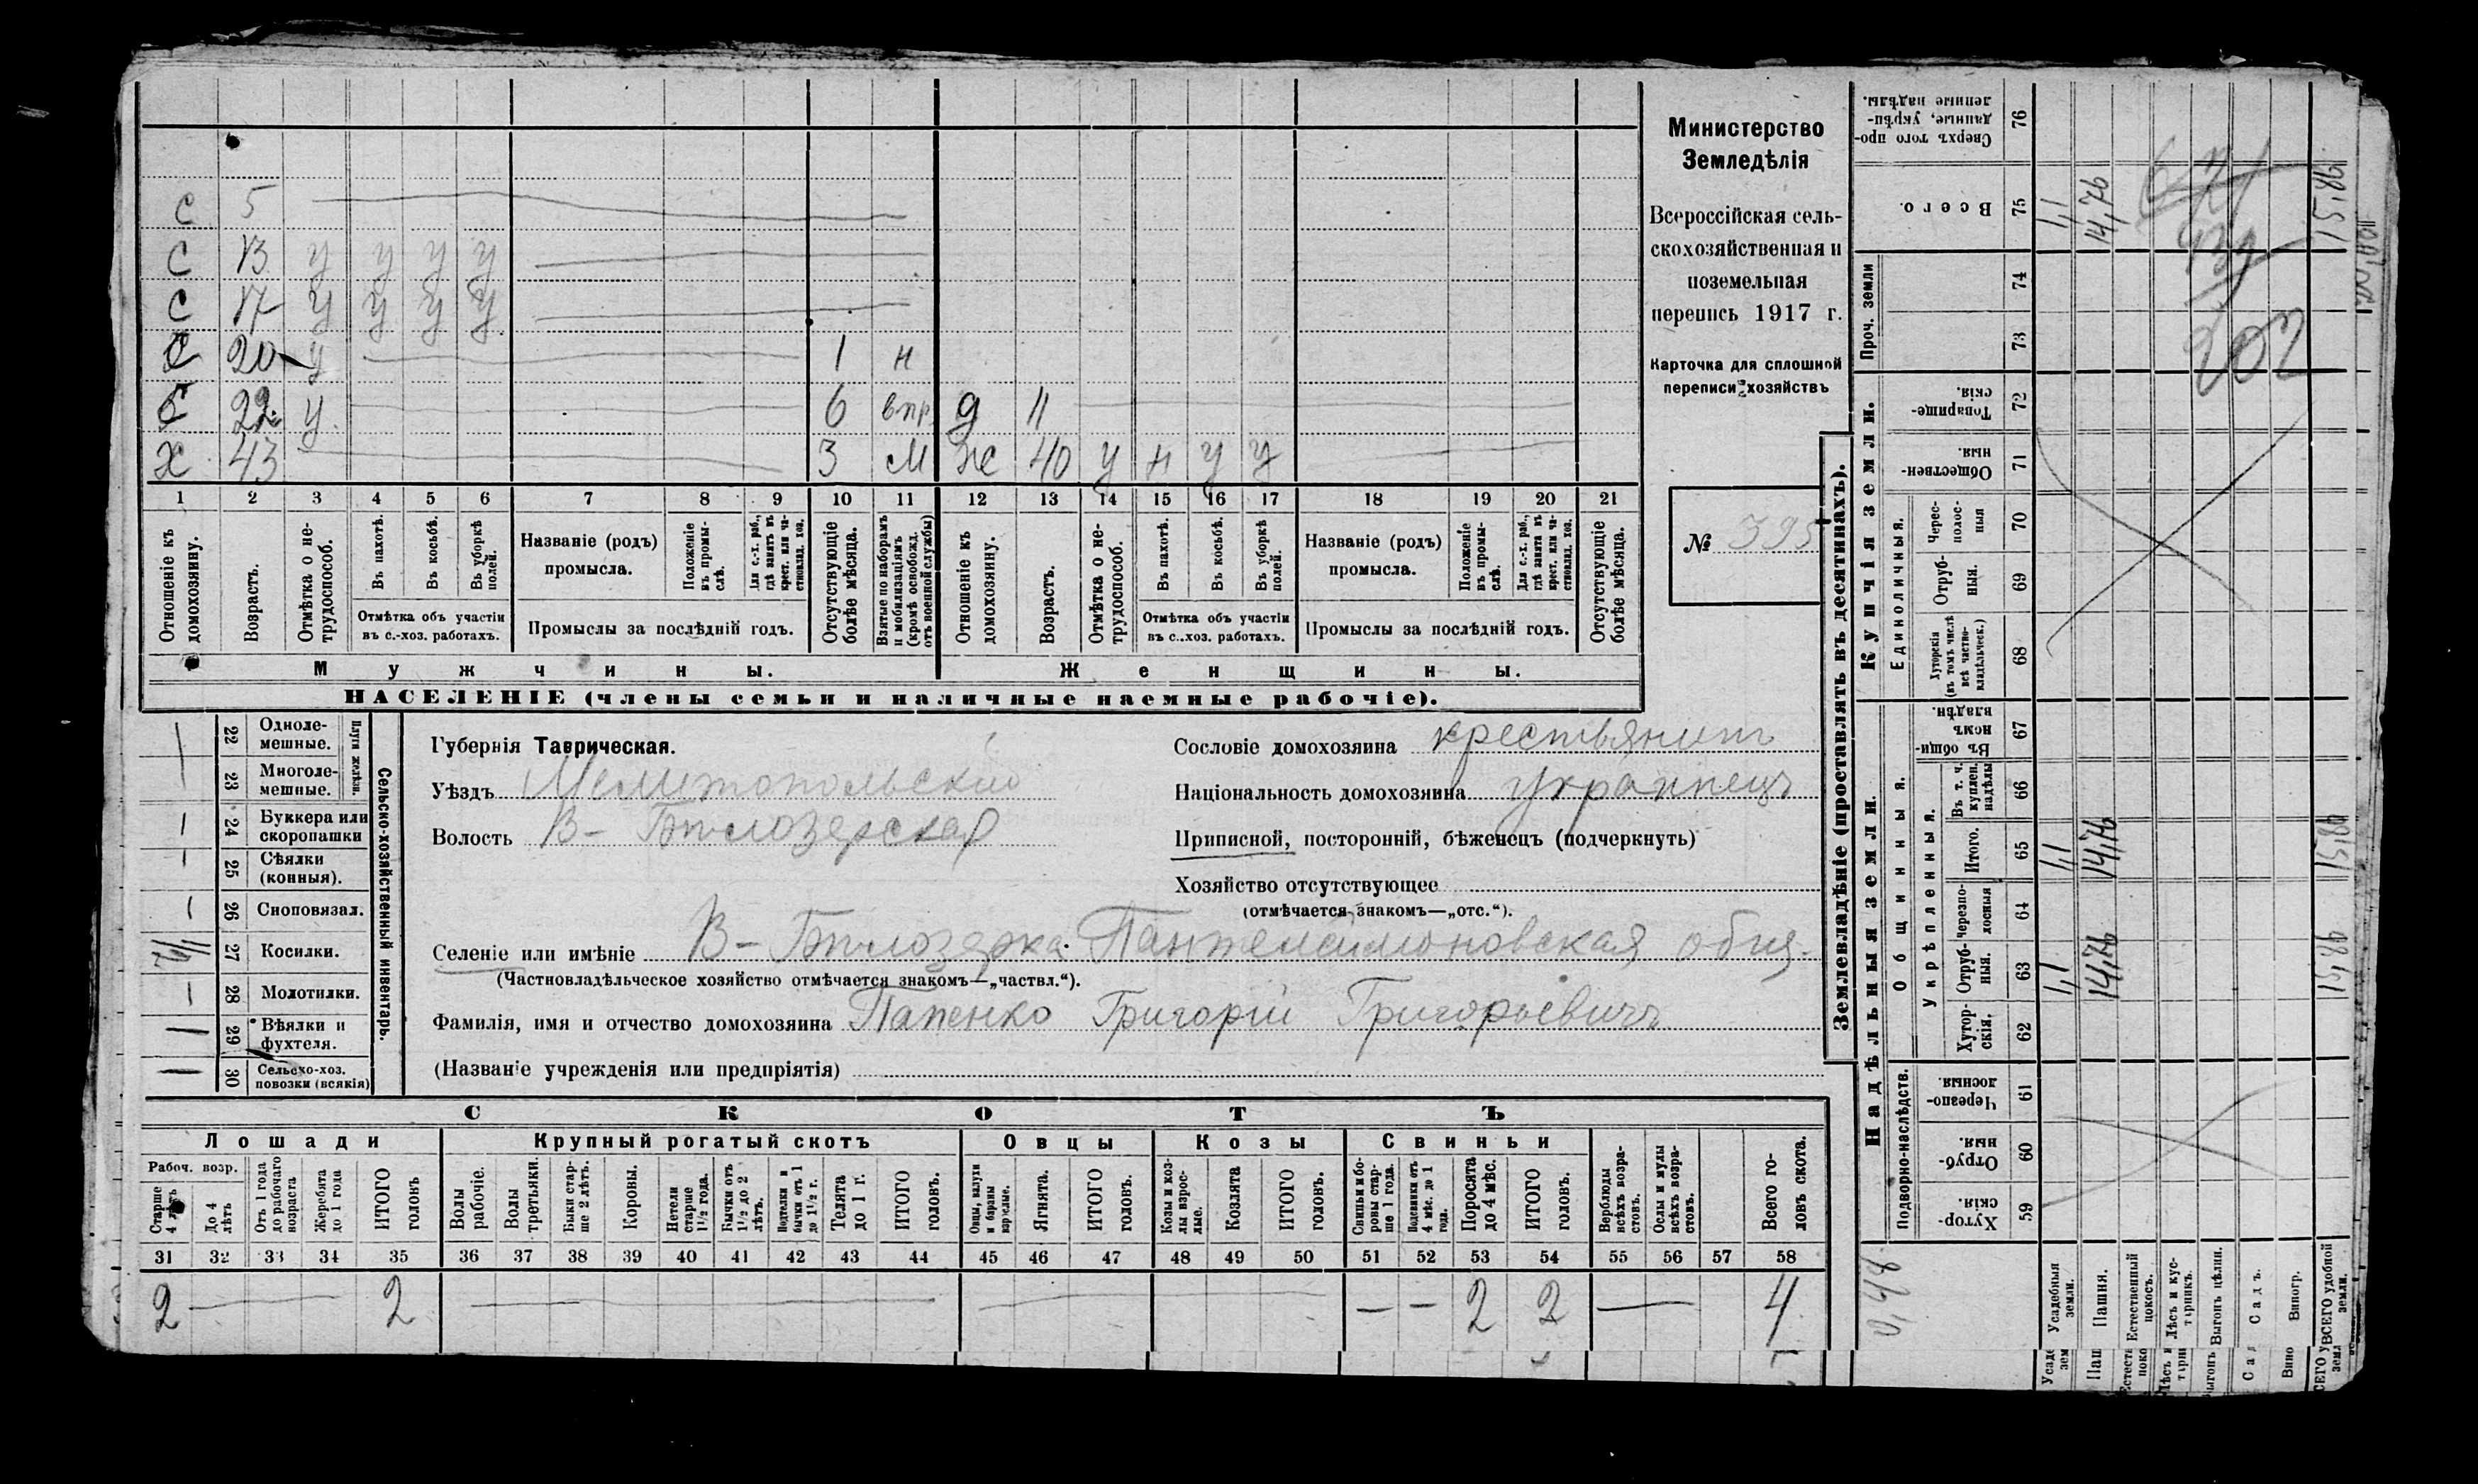 С 5
С 13 у у у у
С 17 у у у у
С 20 у 1 н
С 22 у 6 впр д 11
Х 43 3 м ж 40 у н у у
1 2 3 4 5 6 7 8 9 10 11 12 13 14 15 16 17 18 19 20 21
Отношеніе къ домохозяину.
Возрастъ.
Отмѣтка о не-трудоспособ.
Въ пахотѣ.
Въ косьбѣ.
Въ уборкѣ полей.
Отмѣтка объ участіи
въ с.-хоз. работахъ.
Названіе (родъ)
промысла.
Положеніе въ промы-слѣ.
Для с.-х. раб., гдѣ занятъ въ крест. или ча-стновлад. хоз.
Промыслы за послѣдній годъ.
Отсутствующіе болѣе мѣсяца.
Взятые по наборамъ и мобилизаціямъ (кромѣ освобожд. отъ военной службы)
Отношеніе къ домохозяину.
Возрастъ.
Отмѣтка о не-трудоспособ.
Въ пахотѣ.
Въ косьбѣ.
Въ уборкѣ полей.
Отмѣтка объ участіи
въ с..хоз. работахъ.
Названіе (родъ)
промысла.
Положеніе въ промы-слѣ.
Для с.-х. раб., гдѣ занята въ крест. или ча-стновлад. хоз.
Промыслы за послѣдній годъ.
Отсутствующіе болѣе мѣсяца.
Мужчины.
Женщины.
НАСЕЛЕНІЕ (члены семьи и наличные наемные рабочіе).
Министерство
Земледѣлія
Всероссійская сель-
скохозяйственная и
поземельная
перепись 1917 г.
Карточка для сплошной
переписи хозяйствъ
№ 395
22 Одноле-мешные.
23 Многоле-мешные.
Плуги желѣзн.
24 Буккера или скоропашки
25 Сѣялки (конныя).
26 Сноповязал.
27 Косилки.
28 Молотилки.
29 Вѣялки и фухтеля.
30 Сельско-хоз. повозки (всякія)
Сельско-хозяйственный инвентарь.
Губернія Таврическая.
Уѣздъ Мелитопольскій
Волость В-Бѣлозерская
Сословіе домохозяина крестьянинъ
Національность домохозяина украинецъ
Приписной, посторонній, бѣженецъ (подчеркнуть)
Хозяйство отсутствующее
(отмѣчается знакомъ—„отс.“).
Селеніе или имѣніе В-Бѣлозерка Пантелеймоновская общ.
(Частновладѣльческое хозяйство отмѣчается знакомъ—„частвл.“).
Фамилія, имя и отчество домохозяина Папенко Григорій Григорьевичъ
(Названіе учрежденія или предпріятія)
СКОТЪ
Лошади Крупный рогатый скотъ Овцы Козы Свиньи
Рабоч. возр.
Старше 4 лѣтъ
До 4 лѣтъ
Отъ 1 года до рабочаго возраста
Жеребята до 1 года
ИТОГО головъ
Волы рабочіе.
Волы третьяки.
Быки стар-ше 2 лѣтъ.
Коровы.
Нетели старше 1½ года.
Бычки отъ 1½ до 2 лѣтъ.
Подтелки и бычки отъ 1 до 1½ г.
Телята до 1 г.
ИТОГО головъ.
Овцы, валухи и бараны взрослые.
Ягнята.
ИТОГО головъ.
Козы и коз-лы взрос-лые.
Козлята
ИТОГО головъ.
Свиньи и бо-ровы стар-ше 1 года.
Подсвинки отъ 4 мѣс. до 1 года.
Поросята до 4 мѣс.
ИТОГО головъ.
Верблюды всѣхъ возра-стовъ.
Ослы и мулы всѣхъ возра-стовъ.
Всего го-ловъ скота.
31 32 33 34 35 36 37 38 39 40 41 42 43 44 45 46 47 48 49 50 51 52 53 54 55 56 57 58
2 — 2 — — — — 2 2 — 4
Землевладѣніе (проставлять въ десятинахъ).
Сверхъ того про-данные, укрѣп-ленные надѣлы. 76
Всего. 75
1,1
14,76
15,86
Проч. земли 74 73
202
Купчія земли.
Товарище-скія. 72
Обществен-ныя. 71
Единоличныя.
Черес-полос-ныя 70
Отруб-ныя. 69
Хуторскія (въ томъ числѣ всѣ частно-владѣльческ.) 68
Надѣльныя земли.
Общинныя.
Въ общин-номъ владѣн. 67
Укрѣпленныя.
Въ т. ч. куплен. надѣлы 66
Итого. 65
1,1
14,76
15,86
Черезпо-лосныя 64
Отруб-ныя. 63
1,1
14,76
15,86
Хутор-скія. 62
Подворно-наслѣдств.
Черезпо-лосныя. 61
Отруб-ныя. 60
Хутор-скія. 59
0,48
Усадебныя земли.
Пашня.
Естественный покосъ.
Лѣсъ и кус-тарникъ.
Выгонъ цѣлин.
Садъ.
Виногр.
ВСЕГО удобной земли.